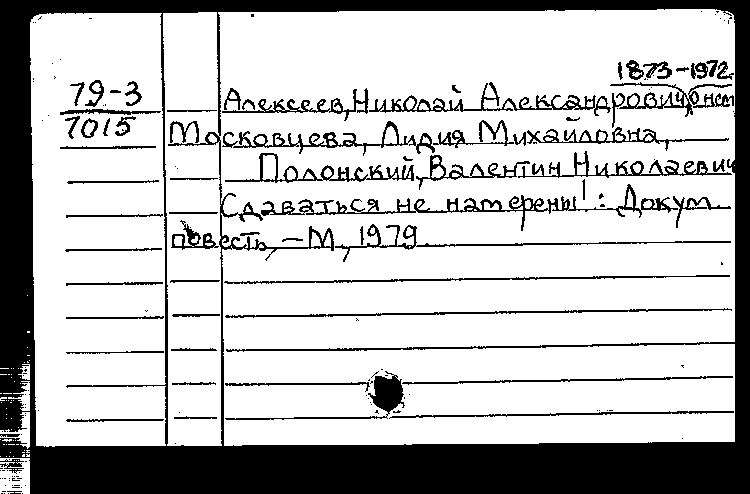 1873-1972
79-3 Алексеев, Николай Александрович
7015 Московцева, Лидия Михайловна,
Полонский, Валентин Николаевич
Сдаваться не намерены! : Докум.
повесть, - М, 1979.